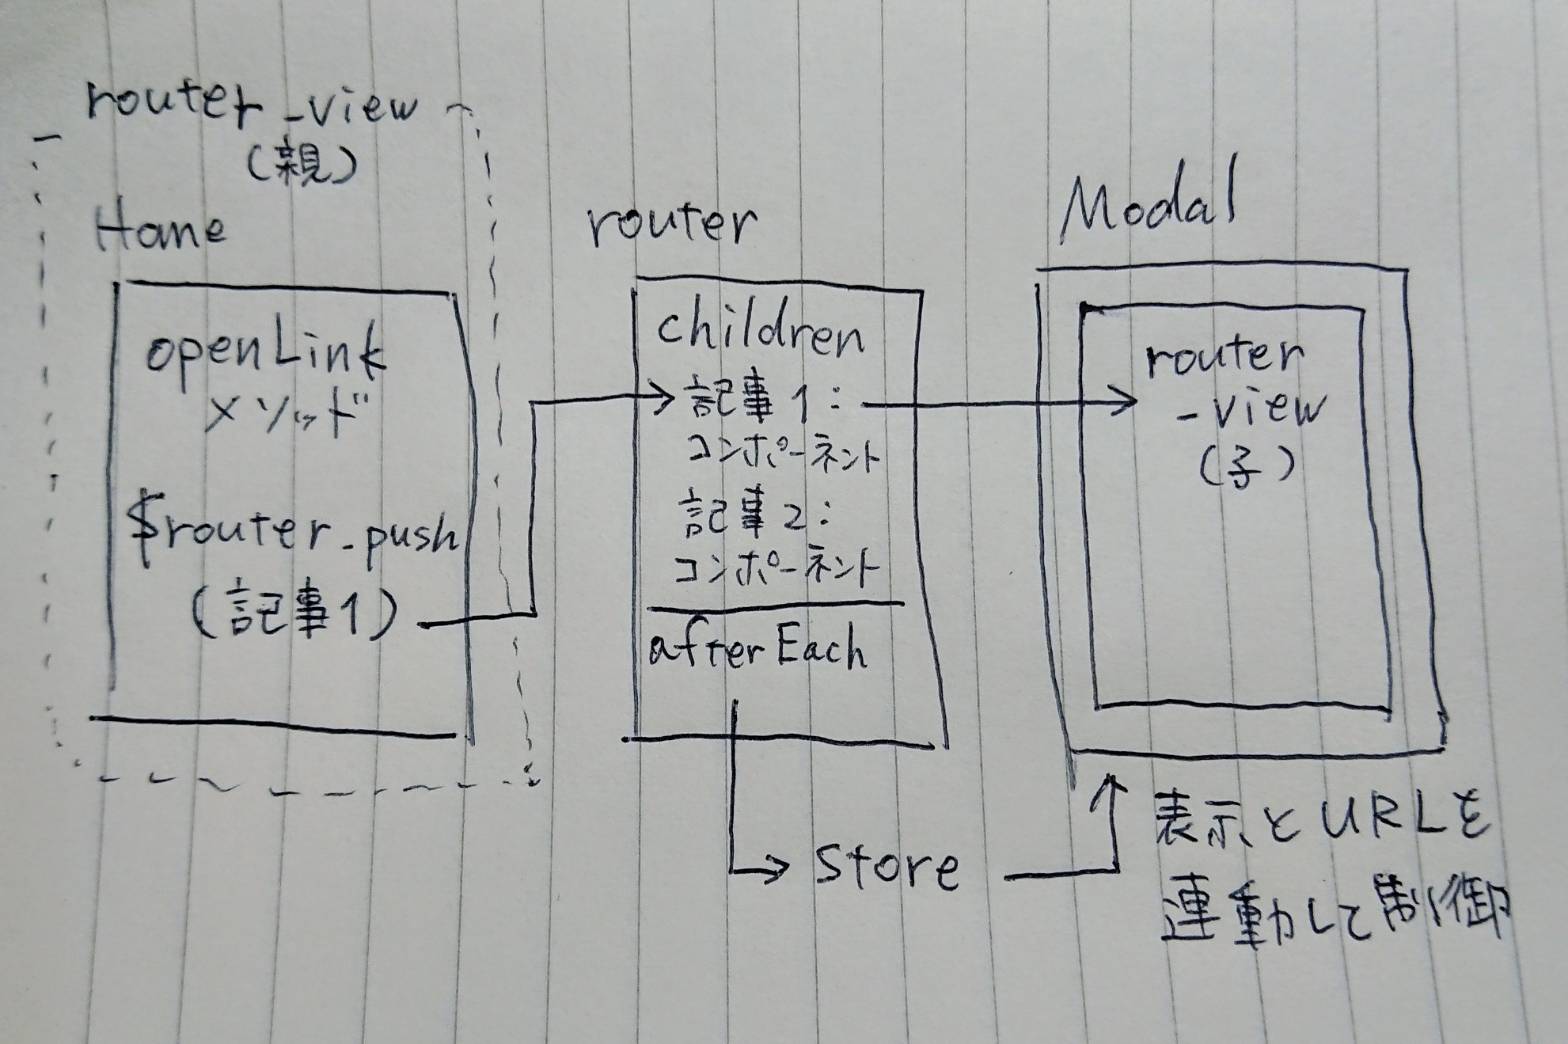 router_view
(親)
Home
openLink
メソッド
$router.push
(記事1)
router
children
記事1:
コンポーネント
記事2:
コンポーネント
afterEach
Modal
router
-view
(子)
Store
表示とURLを
連動して制御